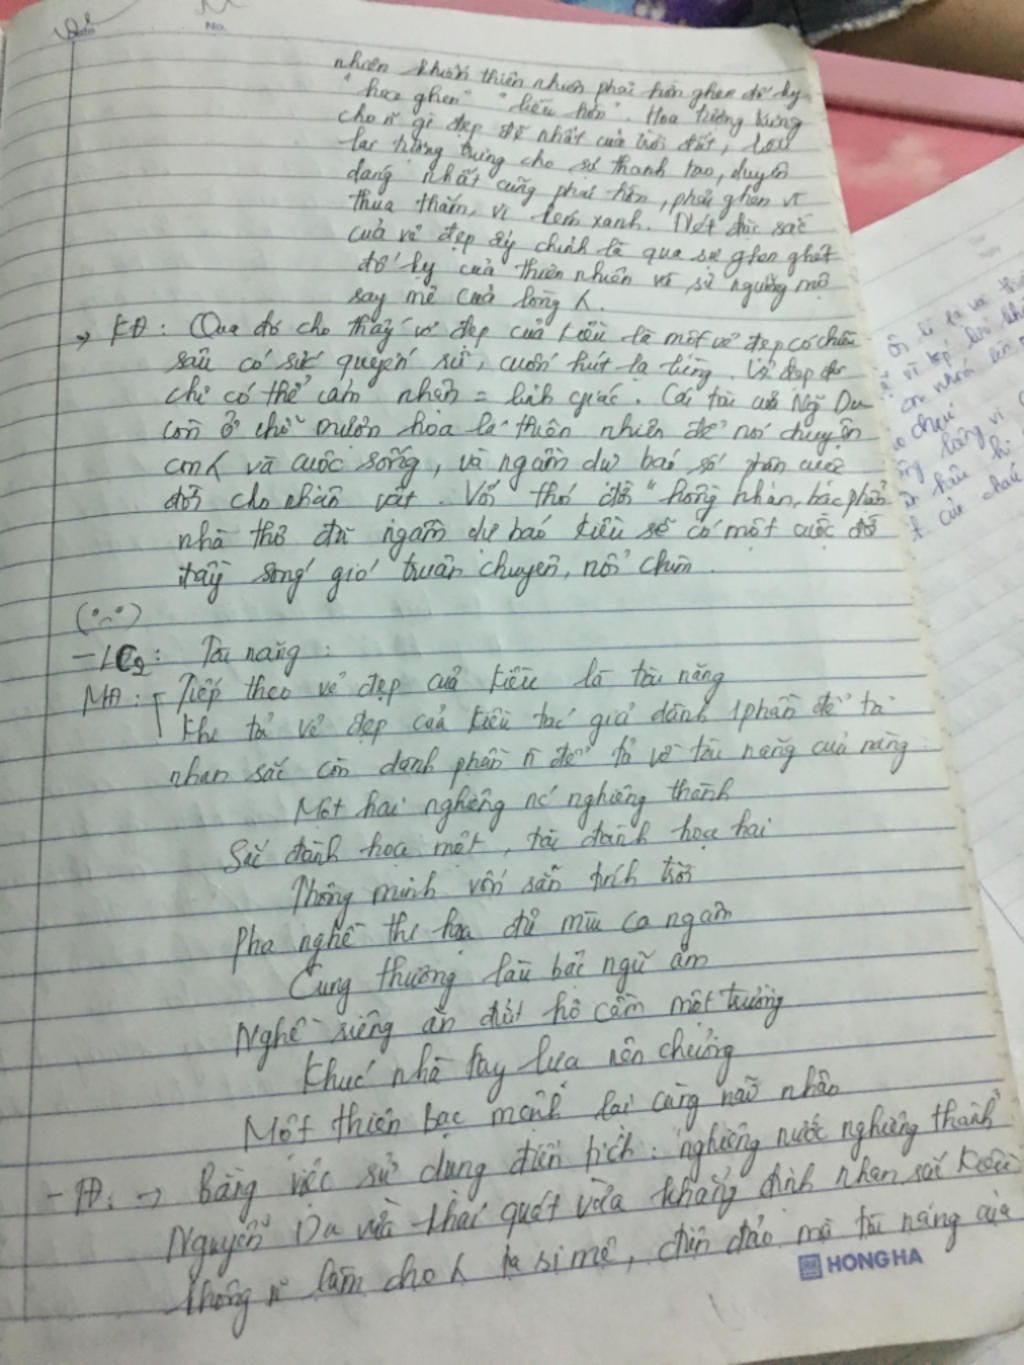 No.
nhiên khiến thiên nhiên phải hờn ghen đố kỵ
"hoa ghen" "liễu hờn". Hoa tượng trưng
cho n~ gì đẹp đẽ nhất của trời đất, liễu
lại tượng trưng cho sự thanh tao, duyên
dáng nhất cũng phải hờn, phải ghen vì
thua thắm, vì kém xanh. Nét đặc sắc
của vẻ đẹp ấy chính là qua sự ghen ghét
đố kỵ của thiên nhiên và sự ngưỡng mộ
say mê của lòng
→ KĐ: Qua đó cho thấy vẻ đẹp của Kiều là một vẻ đẹp có chiều
sâu có sức quyến rũ, cuốn hút lạ lùng. Vẻ đẹp
chỉ có thể cảm nhận = linh giác. Cái tài của Ng~ Du
còn ở chỗ mượn hoa lá thiên nhiên để nói chuyện
con và cuộc sống, và ngầm dự báo số phận cuộc
đời cho nhân vật. Với "hồng nhan, bạc phận"
nhà thơ đã ngầm dự báo Kiều sẽ có một cuộc đời
đầy sóng gió truân chuyên, nổi chìm.
- LC2: Tài năng:
MĐ: Tiếp theo vẻ đẹp của Kiều là tài năng
Khi tả vẻ đẹp của Kiều tác giả dành 1 phần để tả
nhan sắc còn dành phần n~ để tả về tài năng của nàng
Một hai nghiêng nc' nghiêng thành
Sắc đành họa một, tài đành họa hai
Thông minh vốn sẵn tính trời
Pha nghề thi họa đủ mùi ca ngâm
Cung thương lầu bậc ngũ âm
Nghề riêng ăn đứt hồ cầm một trương
Khúc nhà tay lựa nên chương
Một thiên bạc mệnh lại càng não nhân
→ Bằng việc sử dụng điển tích: "nghiêng nước nghiêng thành"
Nguyễn Du vừa khái quát vừa khẳng định nhan sắc Kiều
không n~ làm cho ta si mê, điên đảo mà tài năng của
HONG HA